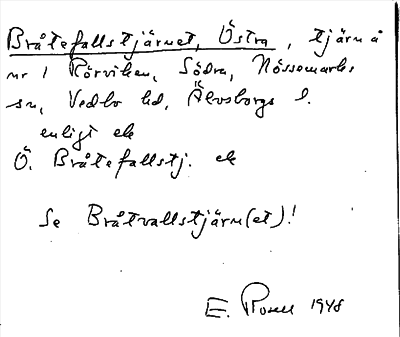 Bråtefallstjärnet, Östra, tjärn å
nr 1 Rörviken, Södra, Nössemarks
sn, Vedbo hd, Älvsborgs l.
enligt ek
Ö. Bråtefallstj. ek
Se Bråtvallstjärn(et)!
E. 1948